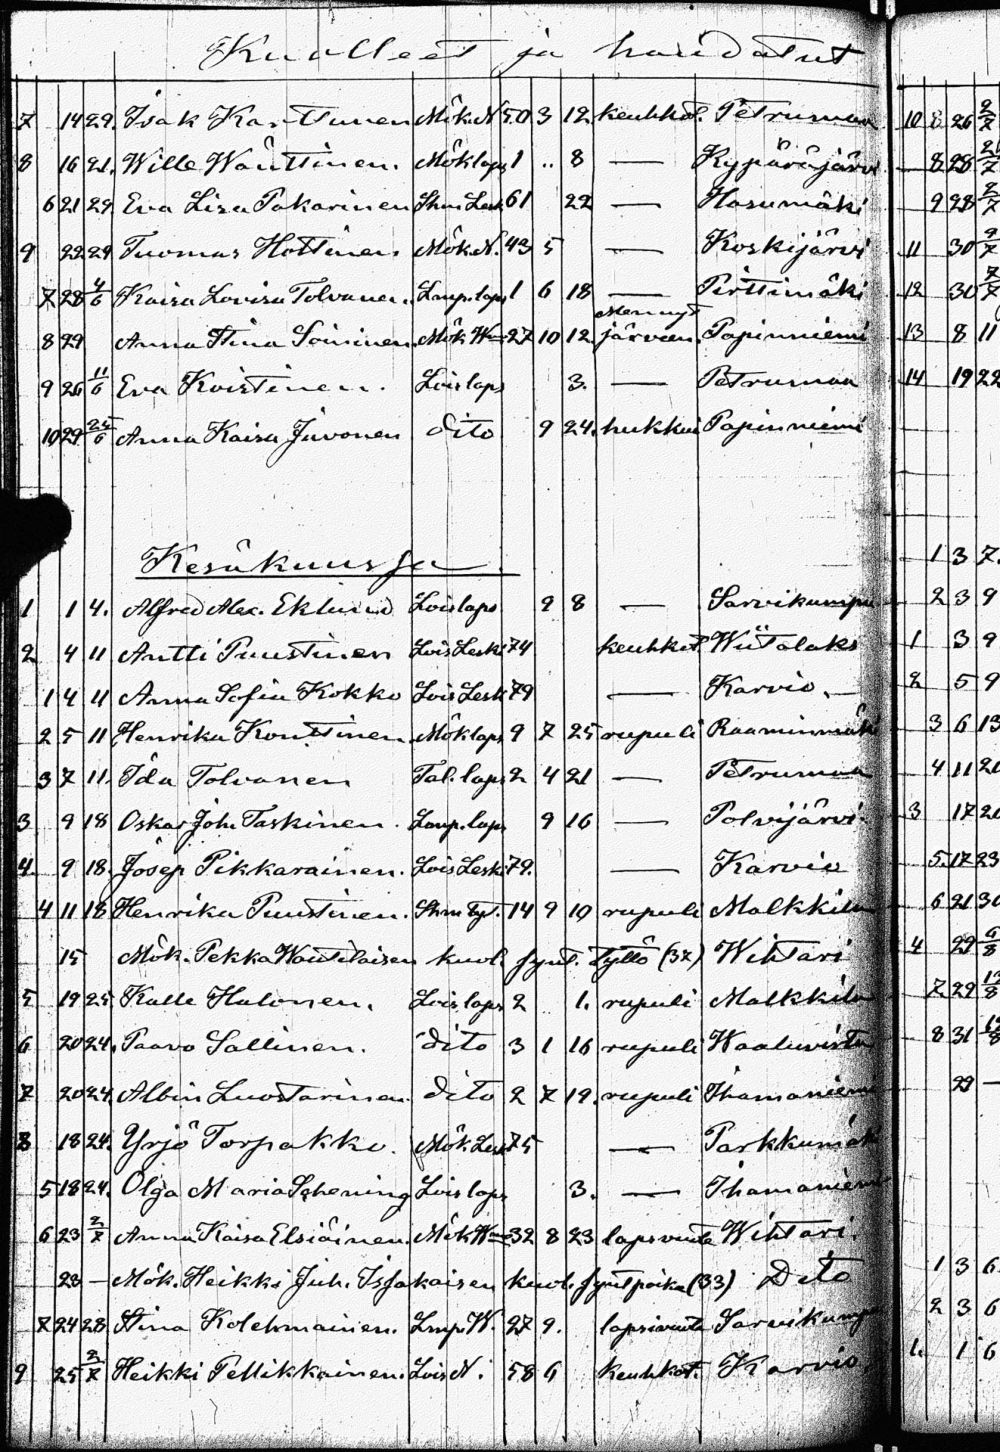 Kuolleet ja haudatut
7 14 29. Isak Karttunen Mök. N. 50 3 12. keuhkot. Petrumaa
8 16 21. Wille Wänttinen. Mök laps 1 .. 8 — Kypäräjärvi
6 21 29. Eva Lisa Pakarinen Lesk 61 22 — Hasumäki
9 22 29 Tuomas Hottinen Mök. N. 43 5 — Koskijärvi
7 28 4/6 Kaisa Lovisa Tolvanen. Lmp. laps 1 6 18 — Pirttimäki
8 29 Anna Stina Soininen Mök W= 27 10 12. Mennyt järveen. Papinniemi
9 26 11/6 Eva Koistinen. Lois laps 3. — Petrumaa
10 29 25/6 Anna Kaisa Juvonen dito 9 24. hukkui Papinniemi
Kesäkuussa
1 1 4. Alfred Alex. Eklund Lois laps 9 8 — Sarvikumpu
2 4 11 Antti Puustinen Lois Leski 74 keuhkot. Wiitalaks
1 4 11 Anna Sofia Kokko Lois Lesk 79 — Karvio.
2 5 11 Henrika Konttinen Mök laps 9 7 25 rupuli
3 7 11. Ida Tolvanen Tal. laps 2 4 21 — Petrumaa
3 9 18 Oskar Joh. Taskinen. Lmp. laps 9 16 — Polvijärvi.
4. 9 18. Josep Pikkarainen. Lois Leski 79. — Karvio
4 11 18 Henrika Puustinen. tyt. 14 9 10 rupuli Malkkila
15 Mök. Pekka Wäntiläisen kuol. synt. tyttö (32) Wihtari
5 19 25 Kalle Halonen. Lois laps 2 1. rupuli Malkkila
6 20 24. Paavo Sallinen. dito 3 1 16 rupuli Waaluvirta
7 20 24. Albin Luostarinen dito 2 7 19. rupuli Ihamaniemi
8 18 24. Yrjö Torpakko. Mök. Lesk 75 — Parkkumäk
5 18 24. Olga Maria Schening Lois laps 3. — Ihamaniemi
6 23 2/7 Anna Kaisa Elsiäinen. Mök W= 32 8 23 lapsvuote Wihtari.
23 — Mök. Heikki Juh. Issakaisen kuol. synt poika (33) Dito
7 24 28 Stina Kolehmainen. Lmp. W. 27 9. lapsivuote Sarvikumpu
9 25 2/7 Heikki Pellikkainen. Lois N. 58 6 keuhkot. Karvio
10 8 26 2/7
8 28
9 28 2/7
11 30 2/7
12 30 7/7
13 8 11
14 19 22
1 3 7.
2 3 9
1 3 9
2 5 9
3 6 13
4 11 20
3 17 20
5. 17 23
6 21 30
4 29 6/8
7 29 13/8
8 31
29 —
1 3 6
2 3 6
1. 1 6